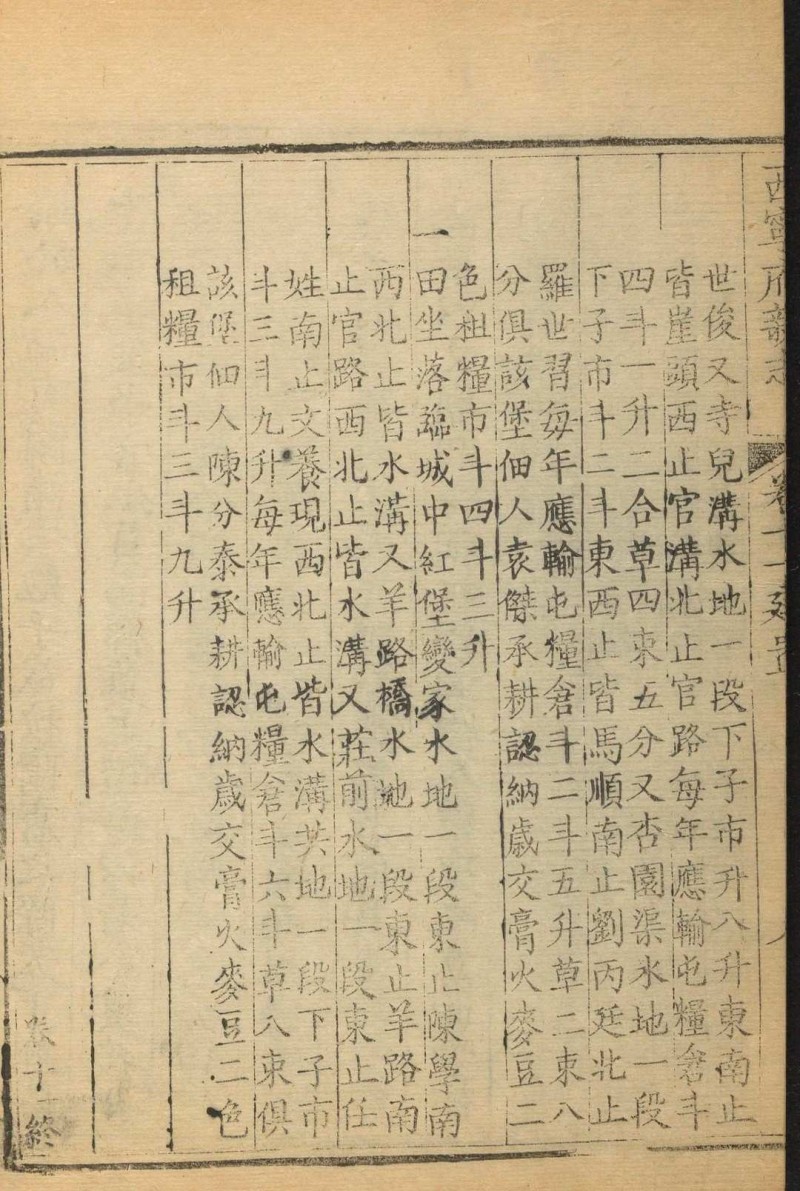 世俊又寺兒溝水地一段下子市升八升東南止
皆崖頭西止官溝北止官路每年應輸屯糧倉斗
四斗一升二合草四束五分又杏園渠水地一段
下子市斗二斗東西止皆馬順南止劉丙廷北止
羅世習每年應輸屯糧倉斗二斗五升草二束八
分俱該堡佃人袁傑承耕認納歲交膏火麥豆二
色租糧市斗四斗三升
一田坐落臨城中紅堡變家水地一段東止陳學南
西北止皆水溝又羊路橋水地一段東止羊路南
止官路西北止皆水溝又莊前水地一段東止任
姓南止文養現西北止皆水溝共地一段下子市
斗三斗九升每年應輸屯糧倉斗六斗草八束俱
該堡佃人陳分泰承耕認納歲交膏火麥豆二色
租糧市斗三斗九升
卷十一終